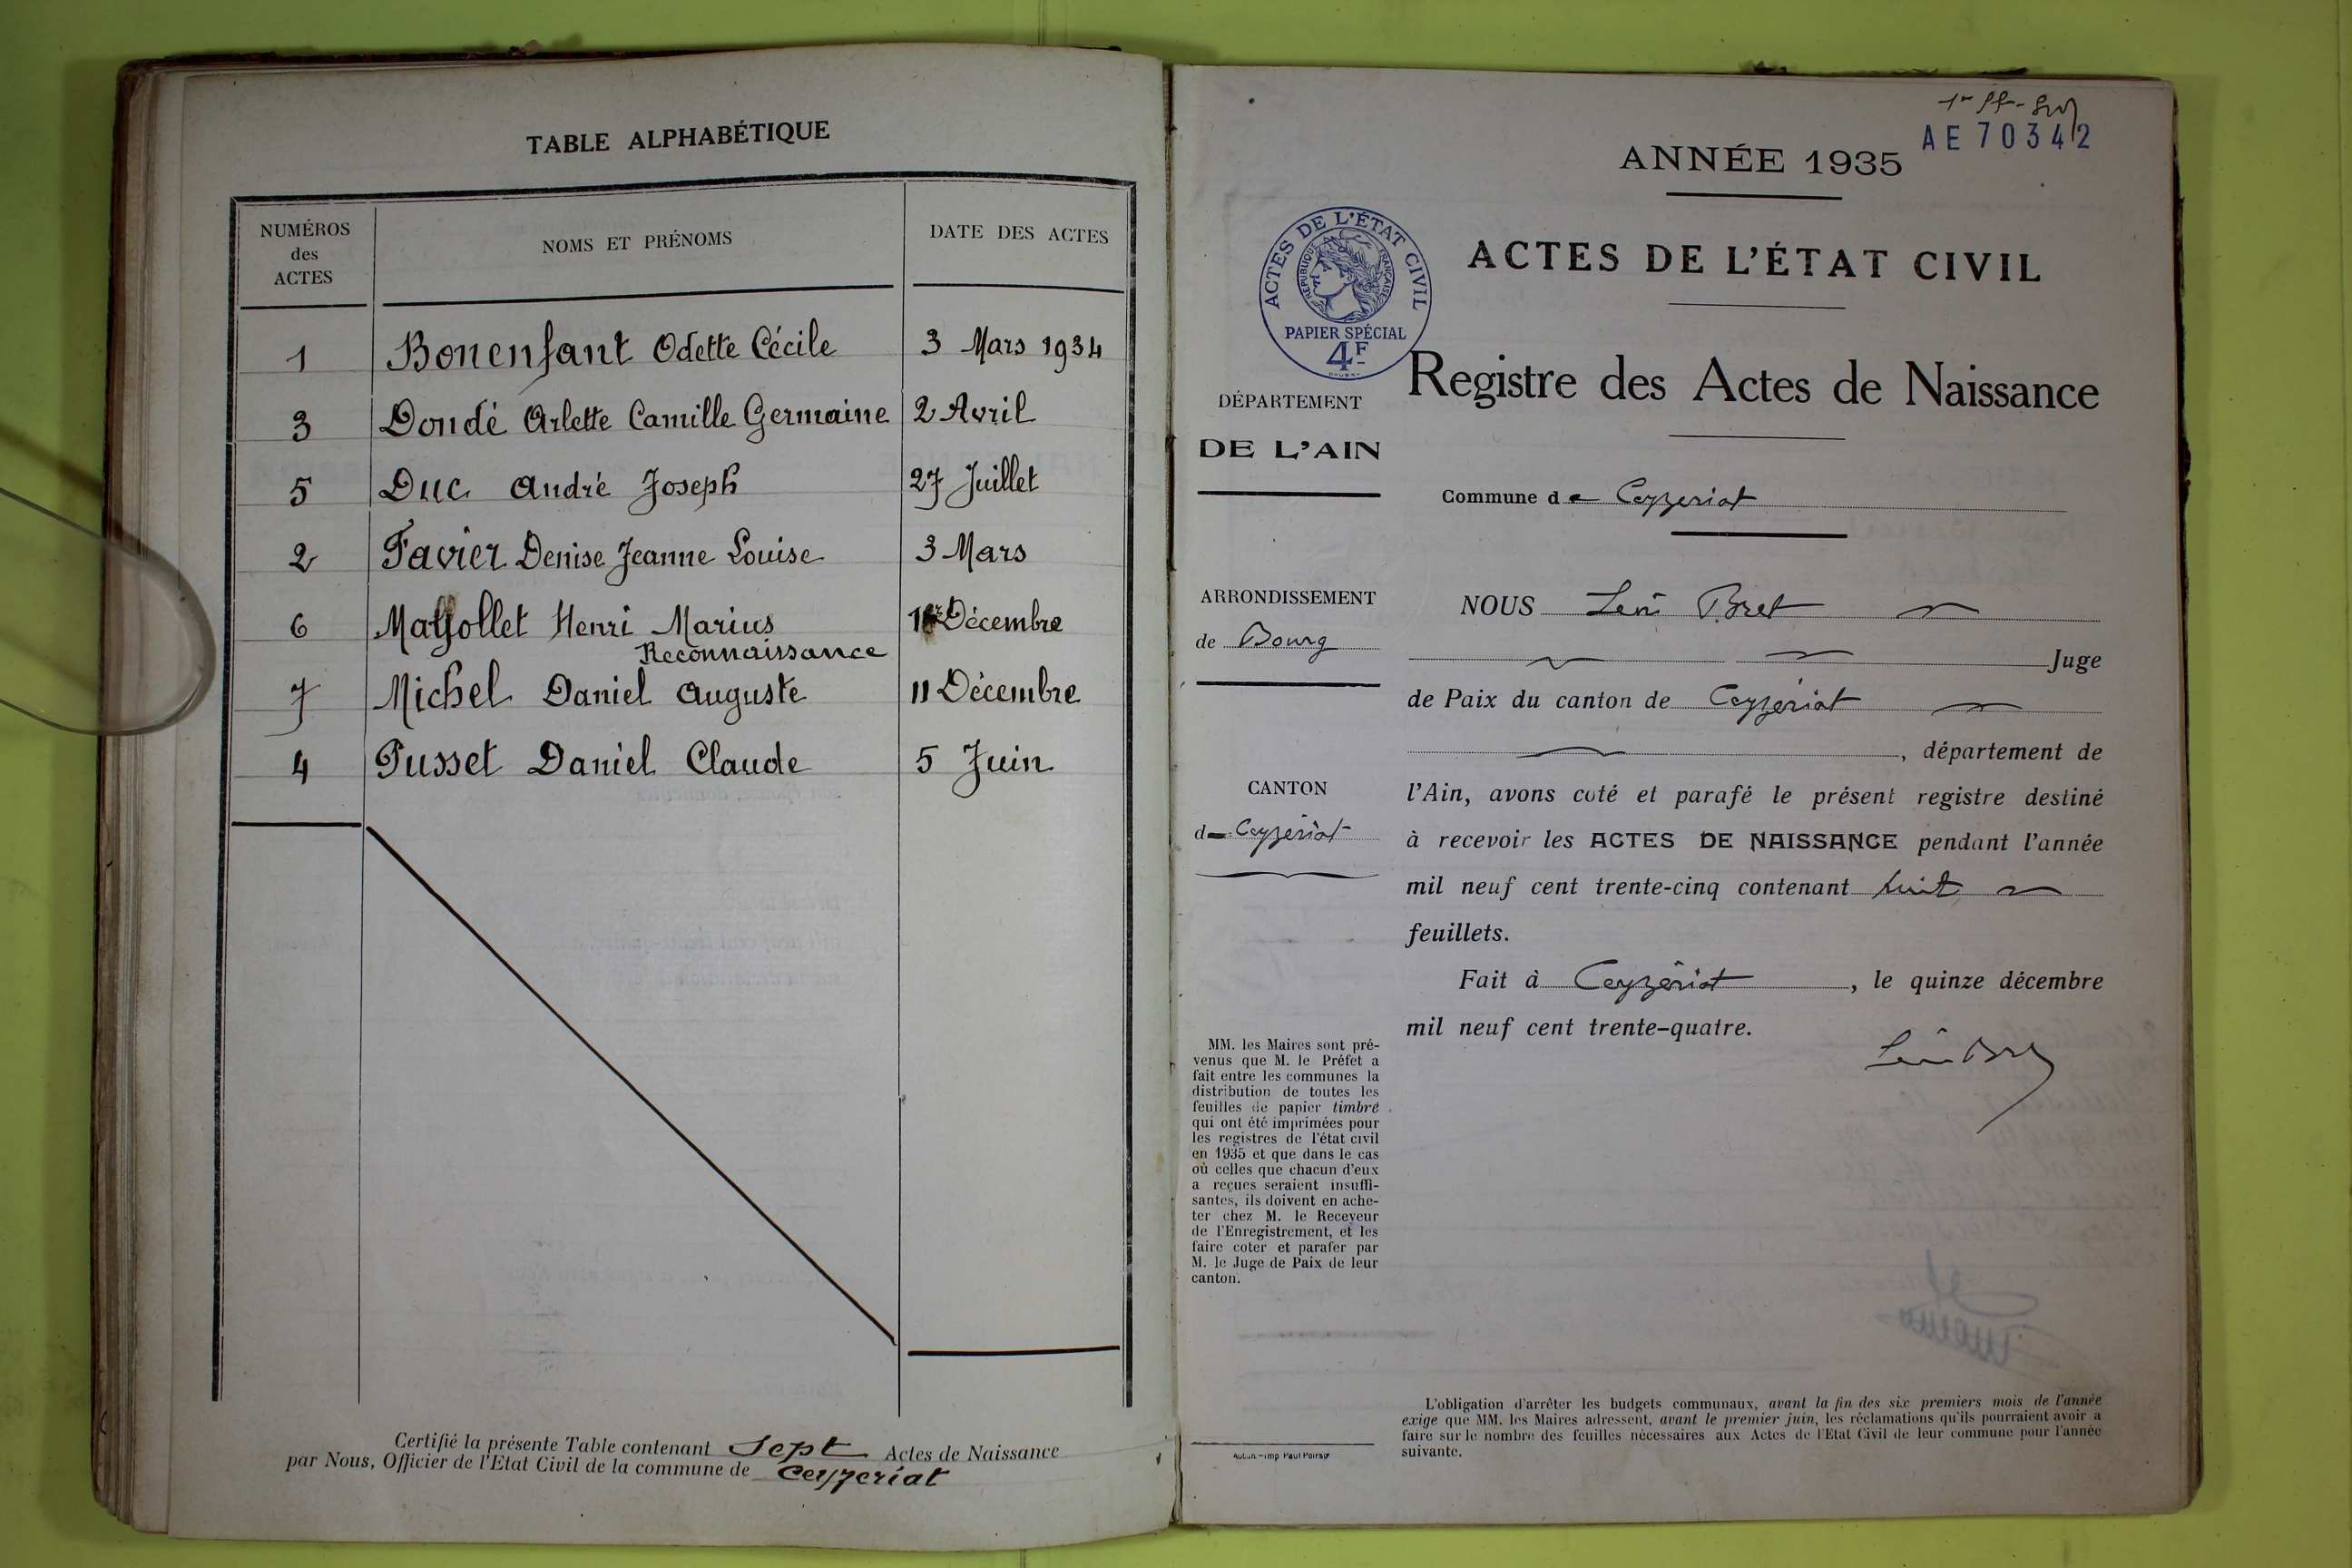 TABLE ALPHABÉTIQUE
NUMÉROS des ACTES NOMS ET PRÉNOMS DATE DES ACTES
1 Bonenfant Odette Cécile 3 Mars 1934
3 Dondé Arlette Camille Germaine 2 Avril
5 Duc André Joseph 27 Juillet
2 Favier Denise Jeanne Louise 3 Mars
6 Henri Marius Décembre
Reconnaissance
7 Michel Daniel Auguste 11 Décembre
4 Pusset Daniel Claude 5 Juin
Certifié la présente Table contenant Sept Actes de Naissance
par Nous, Officier de l'Etat Civil de la commune de Ceyzeriat
AE 70342
ANNÉE 1935
ACTES DE L'ÉTAT CIVIL
RÉPUBLIQUE FRANÇAISE
PAPIER SPÉCIAL
4F
ACTES DE L'ÉTAT CIVIL
Registre des Actes de Naissance
DÉPARTEMENT
DE L'AIN
Commune de Ceyzeriat
ARRONDISSEMENT
de Bourg
CANTON
de Ceyzériat
MM. les Maires sont pré-
venus que M. le Préfet a
fait entre les communes la
distribution de toutes les
feuilles de papier timbré
qui ont été imprimées pour
les registres de l'état civil
en 1935 et que dans le cas
où celles que chacun d'eux
a reçues seraient insuffi-
santes, ils doivent en ache-
ter chez M. le Receveur
de l'Enregistrement, et les
faire coter et parafer par
M. le Juge de Paix de leur
canton.
Autun - imp Paul Poirson
NOUS Léon Bret
Juge
de Paix du canton de Ceyzériat
, département de
l'Ain, avons coté et parafé le présent registre destiné
à recevoir les ACTES DE NAISSANCE pendant l'année
mil neuf cent trente-cinq contenant huit
feuillets.
Fait à Ceyzériat, le quinze décembre
mil neuf cent trente-quatre.
L'obligation d'arrêter les budgets communaux, avant la fin des six premiers mois de l'année
exige que MM. les Maires adressent, avant le premier juin, les réclamations qu'ils pourraient avoir a
faire sur le nombre des feuilles nécessaires aux Actes de l'Etat Civil de leur commune pour l'année
suivante.